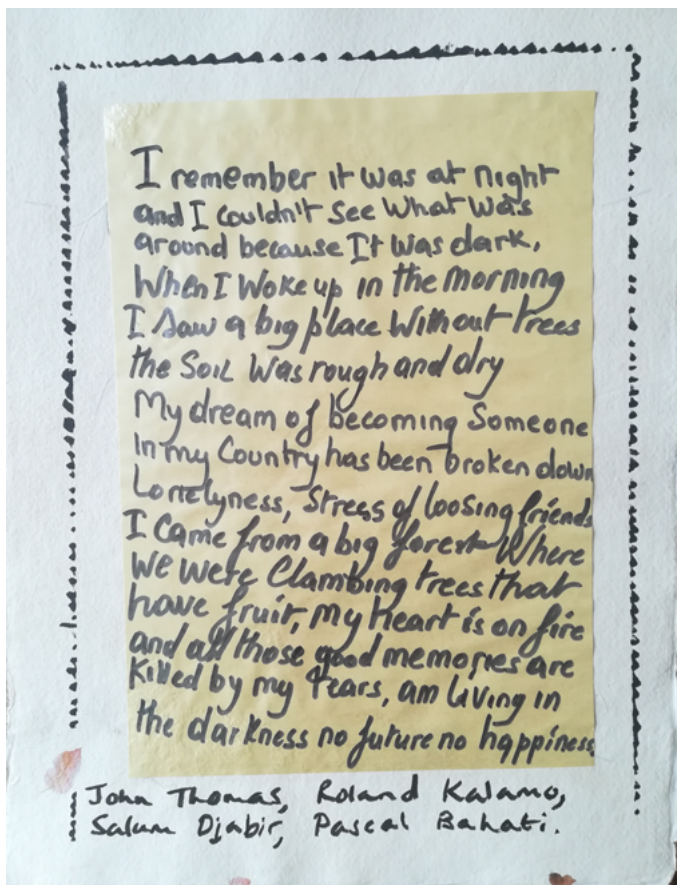 I remember it was at night
and I couldn't see what was
around because It was dark,
When I Woke up in the morning
I saw a big place Without trees
the Soil Was rough and dry
My dream of becoming Someone
In my Country has been broken down
Lonelyness, Stress of loosing friends
I came from a big forest Where
We Were Clambing trees that
have fruit, my heart is on fire
and all those good memories are
killed by my tears, am living in
the darkness no future no happiness
John Thomas, Roland Kalamo,
Salum Djabir, Pascal Bahati.